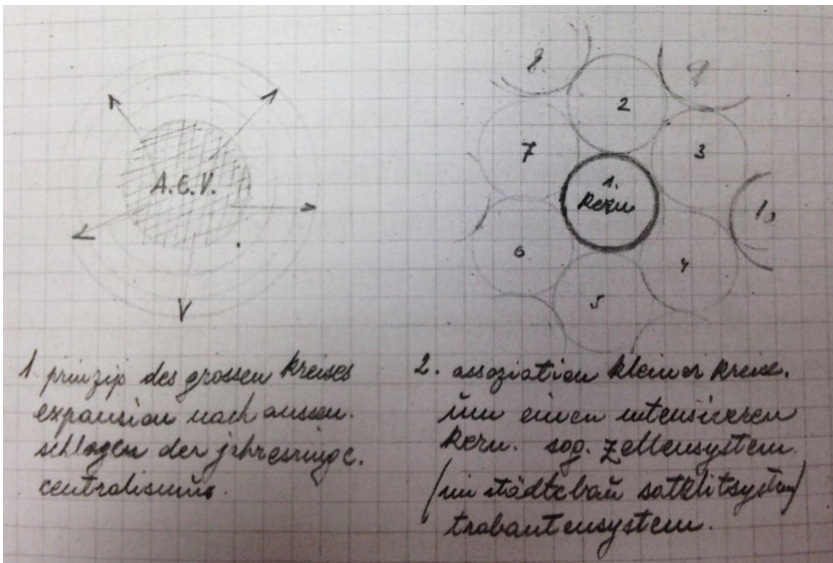 A.E.V.
8
9
2
7
3
1.
Kern
10
6
4
5
1. prinzip des grossen kreises
expansion nach aussen.
schlagen der jahresringe.
centralismus.
2. assoziation kleiner kreise.
um einen intensiveren
kern. sog. zellensystem
(im städtebau satellitsystem)
trabantensystem.